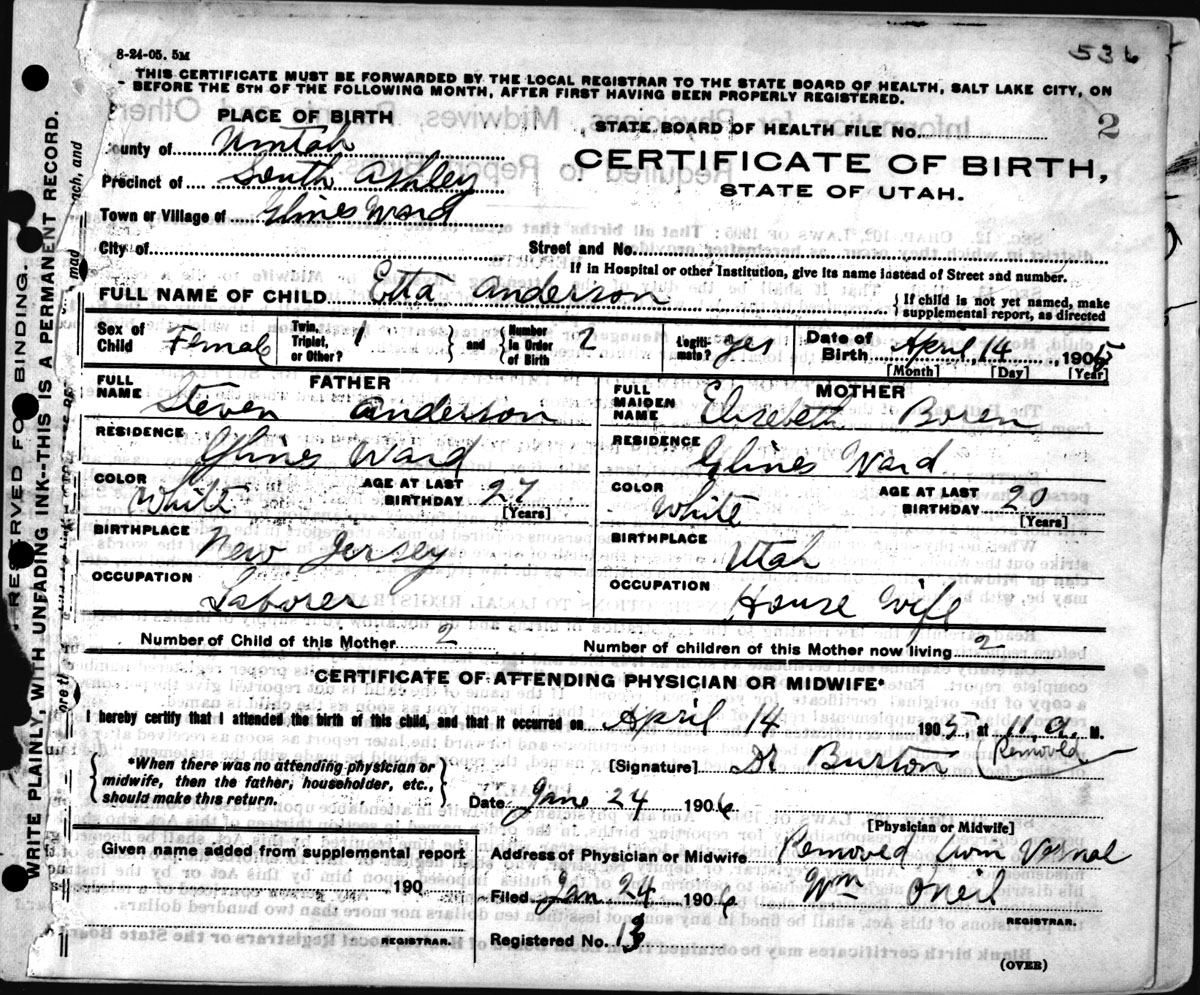 8-24-05. 5M
536
THIS CERTIFICATE MUST BE FORWARDED BY THE LOCAL REGISTRAR TO THE STATE BOARD OF HEALTH, SALT LAKE CITY, ON
BEFORE THE 5TH OF THE FOLLOWING MONTH, AFTER FIRST HAVING BEEN PROPERLY REGISTERED.
PLACE OF BIRTH
STATE BOARD OF HEALTH FILE No. 2
County of Uintah
CERTIFICATE OF BIRTH,
Precinct of South Ashley
STATE OF UTAH.
Town or Village of Glines Ward
City of Street and No.
If in Hospital or other Institution, give its name instead of Street and number.
FULL NAME OF CHILD Etta Anderson { If child is not yet named, make
supplemental report, as directed
Sex of Child Female Twin, Triplet, or Other? 1 } and { Number in Order of Birth 2 Legiti-mate? yes Date of Birth April 14, 1905
[Month] [Day] [Year]
FATHER
FULL NAME Steven Anderson
RESIDENCE Glines Ward
COLOR White AGE AT LAST BIRTHDAY 27
[Years]
BIRTHPLACE New Jersey
OCCUPATION Laborer
MOTHER
FULL MAIDEN NAME Elizebeth Boren
RESIDENCE Glines Ward
COLOR White AGE AT LAST BIRTHDAY 20
[Years]
BIRTHPLACE Utah
OCCUPATION House Wife
Number of Child of this Mother 2 Number of children of this Mother now living 2
CERTIFICATE OF ATTENDING PHYSICIAN OR MIDWIFE*
I hereby certify that I attended the birth of this child, and that it occurred on April 14 1905, at 11, a. M.
*When there was no attending physician or
midwife, then the father, householder, etc.,
should make this return.
[Signature] Dr Burton (Removed
Date Jane 24 1906
[Physician or Midwife]
Given name added from supplemental report
190
REGISTRAR.
Address of Physician or Midwife Removed from Vernal
Filed Jan 24 1906 Wm Oneil
REGISTRAR.
Registered No. 13
(OVER)
RESERVED FOR BINDING.
WRITE PLAINLY, WITH UNFADING INK--THIS IS A PERMANENT RECORD.